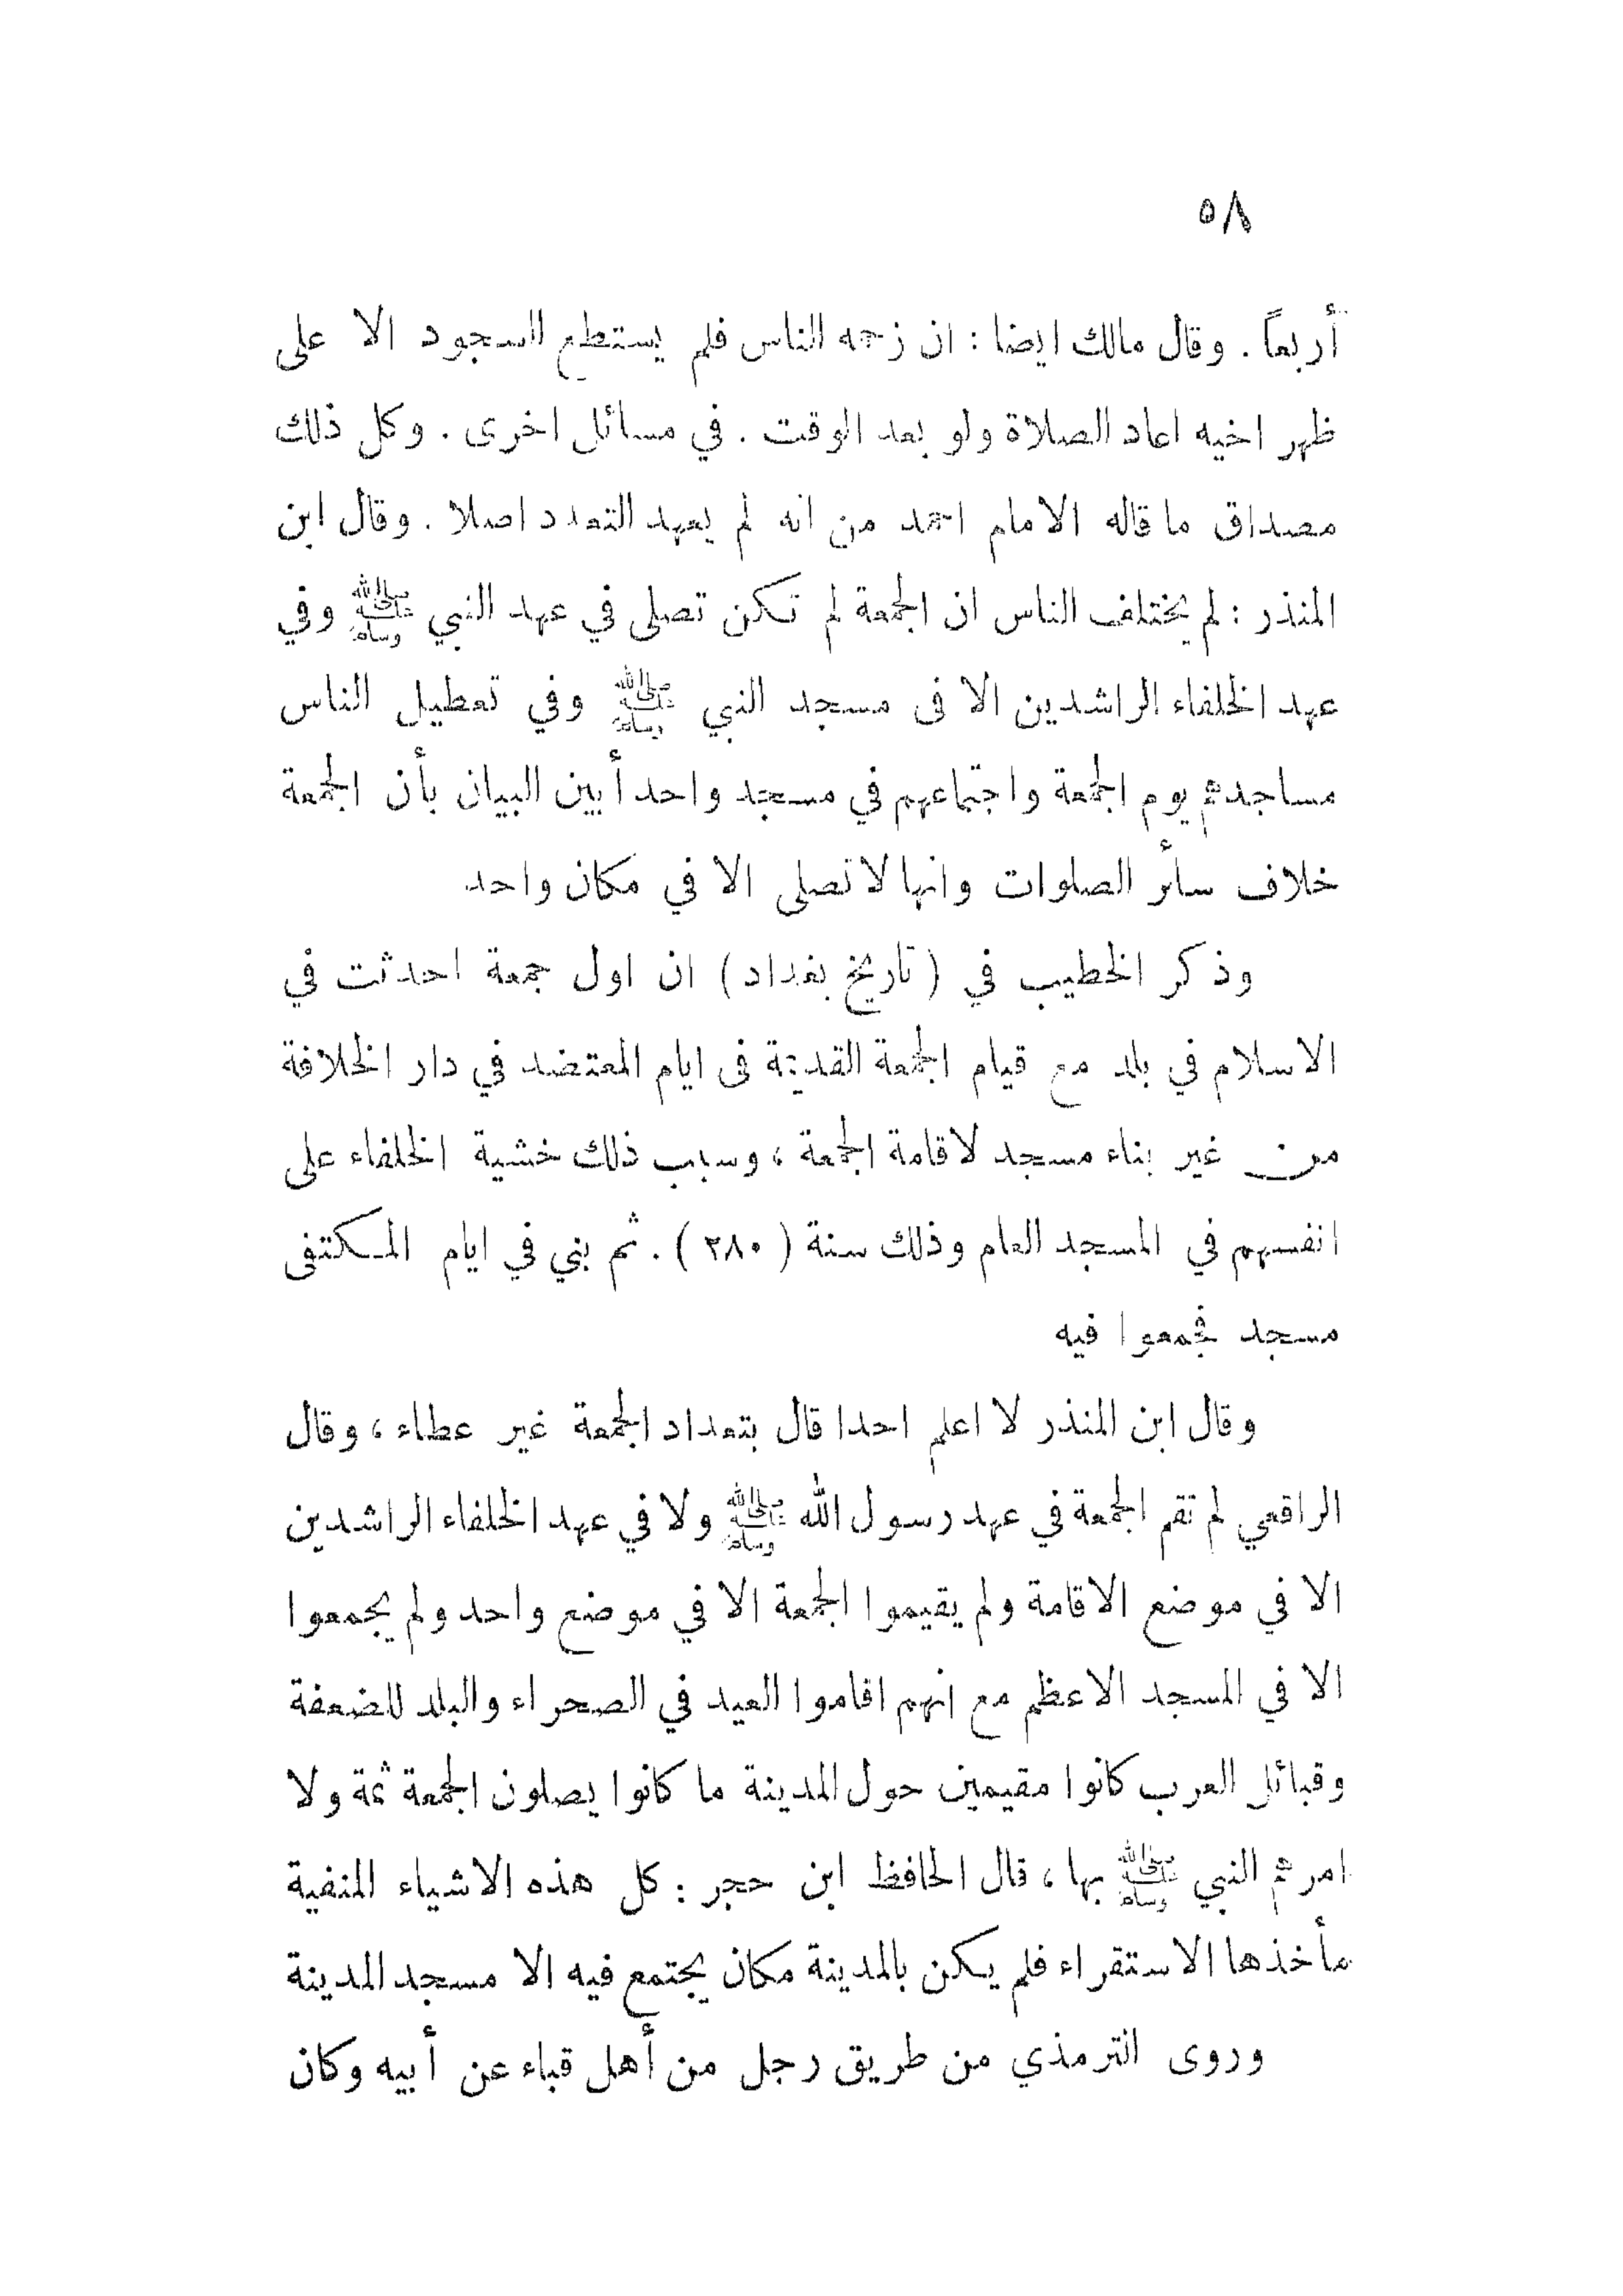 ٥٨
أربعاً . وقال مالك ايضا : ان زحمه الناس فلم يستطع السجود الا على
ظهر اخيه اعاد الصلاة ولو بعد الوقت . في مسائل اخرى . وكل ذلك
مصداق ما قاله الامام احمد من انه لم يعهد التعدد اصلا . وقال ابن
المنذر : لم يختلف الناس ان الجمعة لم تكن تصلى في عهد النبي ﷺ وفي
عهد الخلفاء الراشدين الا فى مسجد النبي ﷺ وفي تعطيل الناس
مساجدهم يوم الجمعة واجتماعهم في مسجد واحد أبين البيان بأن الجمعة
خلاف سائر الصلوات وانها لا تصلى الا في مكان واحد
وذكر الخطيب في ( تاريخ بغداد ) ان اول جمعة احدثت في
الاسلام في بلد مع قيام الجمعة القديمة فى ايام المعتضد في دار الخلافة
من غير بناء مسجد لاقامة الجمعة ، وسبب ذلك خشية الخلفاء على
انفسهم في المسجد العام وذلك سنة ( ٢٨٠ ) . ثم بني في ايام المكتفى
مسجد فجمعوا فيه
وقال ابن المنذر لا اعلم احدا قال بتعداد الجمعة غير عطاء ، وقال
الراقعي لم تقم الجمعة في عهد رسول الله ﷺ ولا في عهد الخلفاء الراشدين
الا في موضع الاقامة ولم يقيموا الجمعة الا في موضع واحد ولم يجمعوا
الا في المسجد الاعظم مع انهم اقاموا العيد في الصحراء والبلد للضعفة
وقبائل العرب كانوا مقيمين حول المدينة ما كانوا يصلون الجمعة ثمة ولا
امرهم النبي ﷺ بها ، قال الحافظ ابن حجر : كل هذه الاشياء المنفية
مأخذها الاستقراء فلم يكن بالمدينة مكان يجتمع فيه الا مسجد المدينة
وروى الترمذي من طريق رجل من أهل قباء عن أبيه وكان